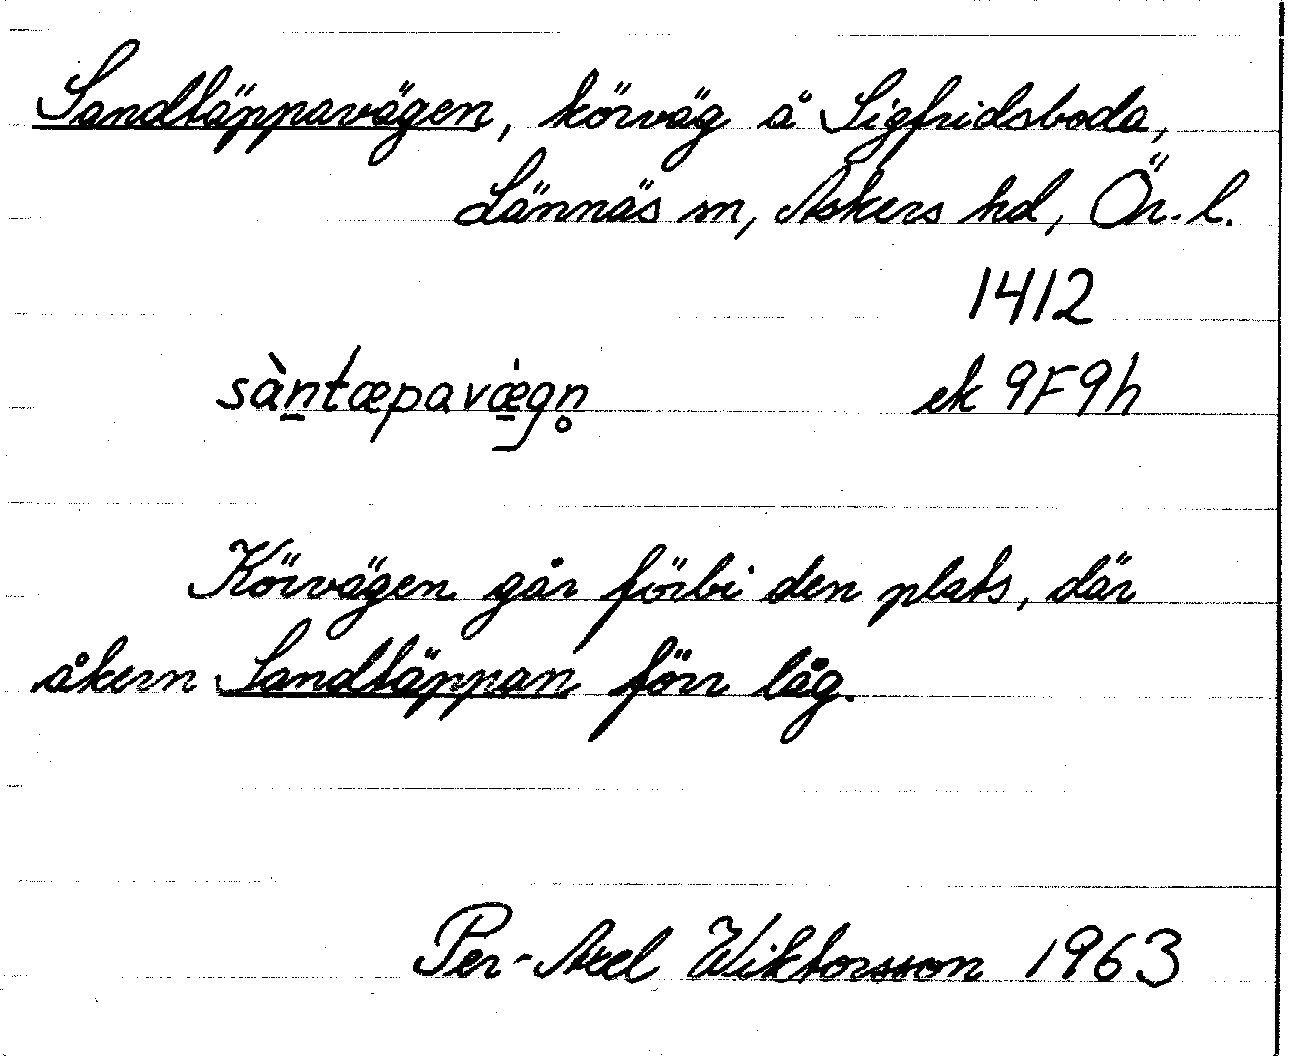 Sandtäppavägen, körväg å Sigfridsboda,
Lännäs sn, Askers hd, Ör. l.
1412
sàn̠tæpavǽ̠gn̥ ek 9F9h
Körvägen går förbi den plats, där
åkern Sandtäppan förr låg.
Per-Axel Wiktorsson 1963